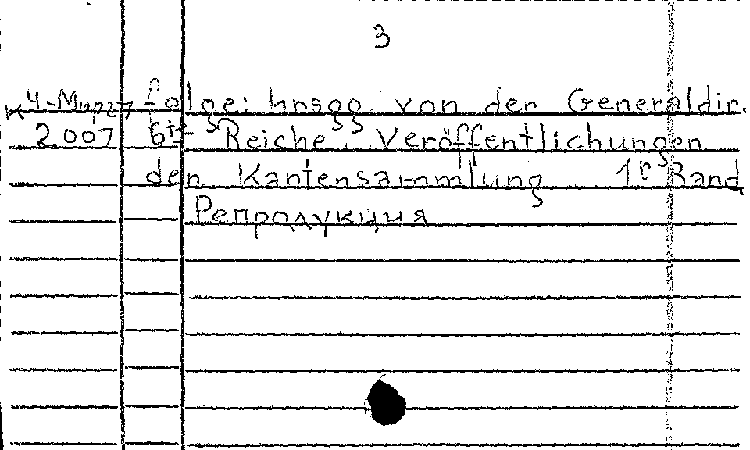 3
K4-Мирзт folge: hrsgg. von der Generaldir.
2.007 6ᵗᵉ Reiche. Veröffentlichungen
den Kantensammlung 1ᵉ Band
Репродукция